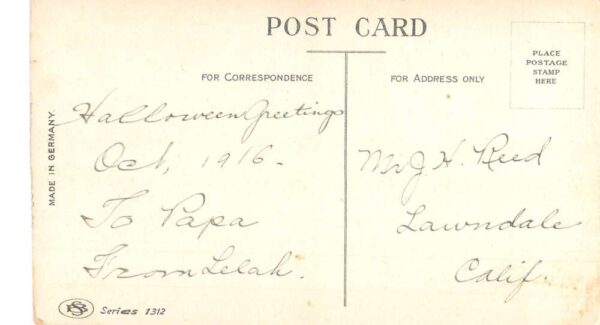 POST CARD
FOR CORRESPONDENCE
FOR ADDRESS ONLY
PLACE
POSTAGE
STAMP
HERE
MADE IN GERMANY.
Halloween Greetings
Oct, 1916.
To Papa
From Lelah.
Mr J. H. Reed
Lawndale
Calif.
Series 1312